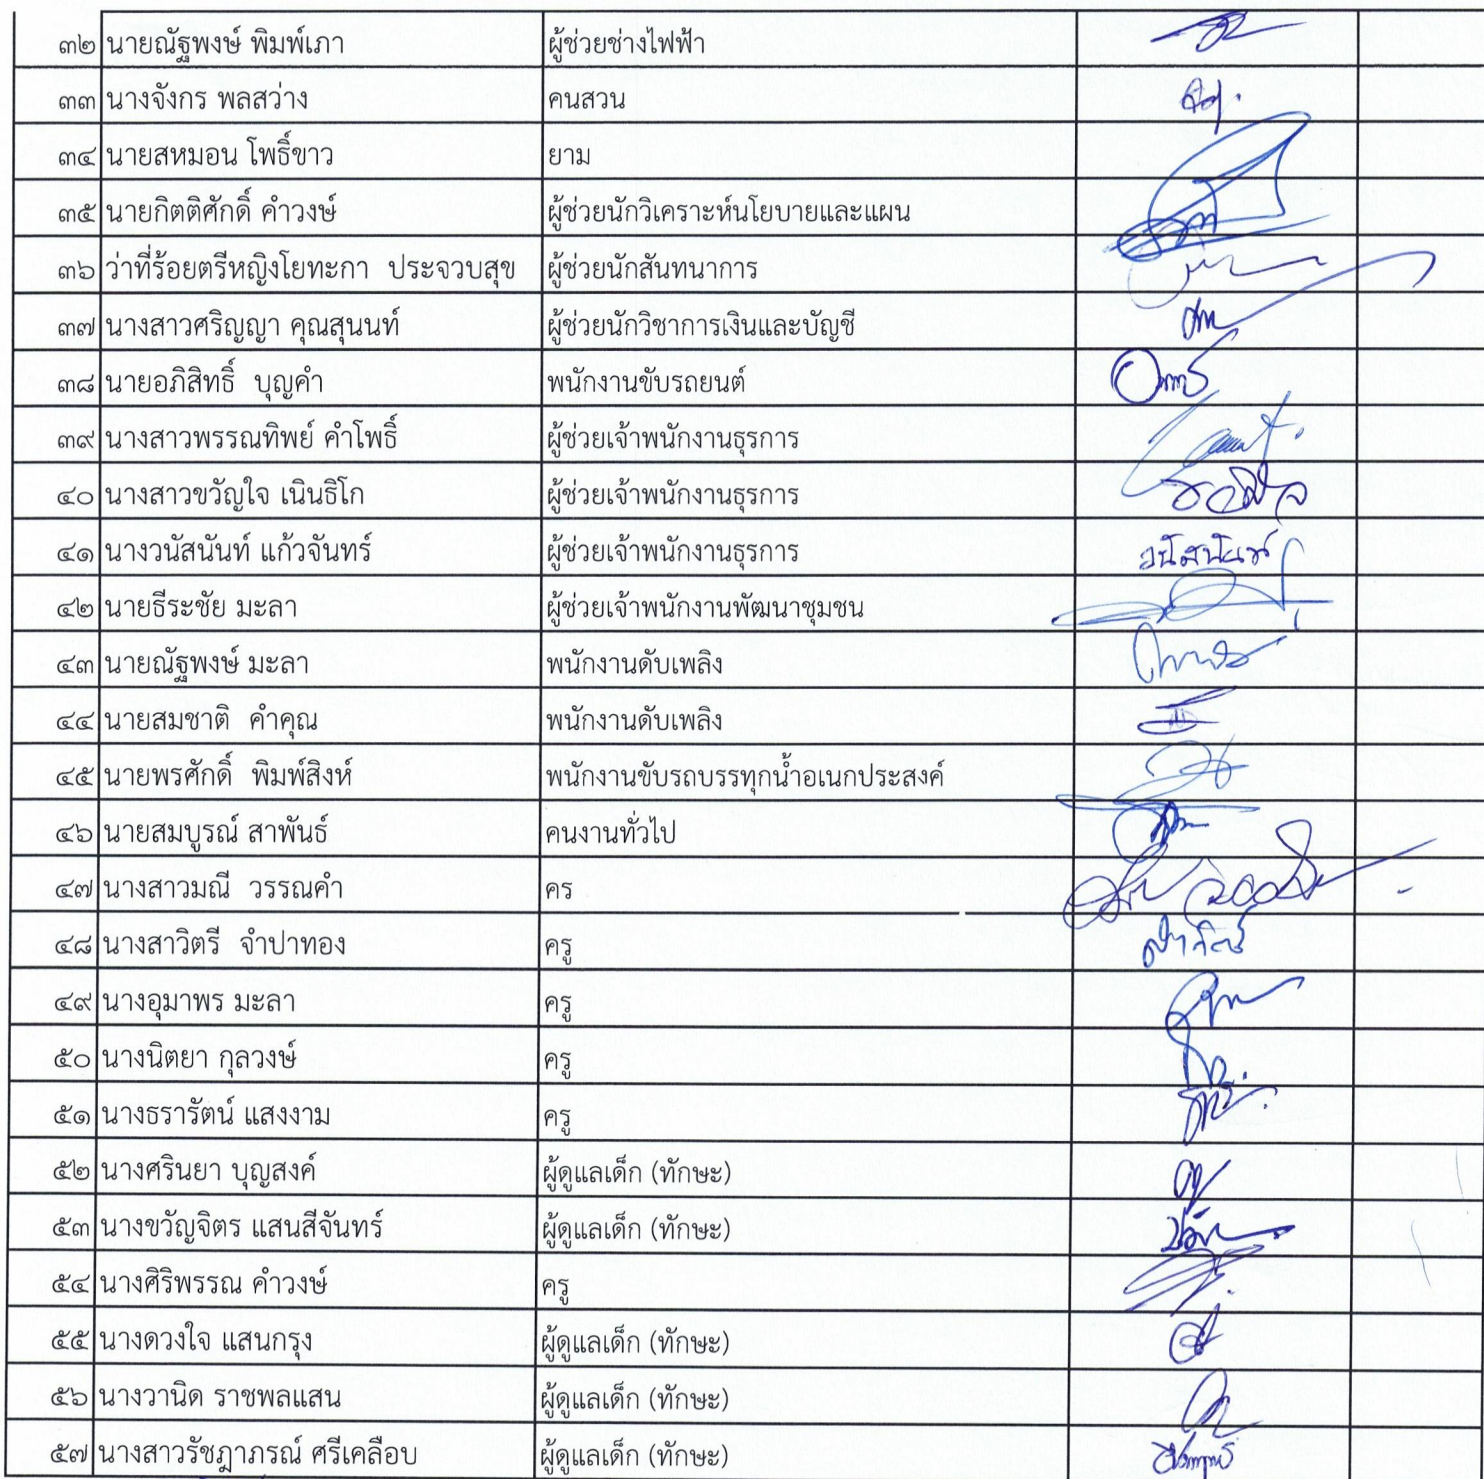 ๓๒ นายณัฐพงษ์ พิมพ์เภา ผู้ช่วยช่างไฟฟ้า
๓๓ นางจังกร พลสว่าง คนสวน
๓๔ นายสหมอน โพธิ์ขาว ยาม
๓๕ นายกิตติศักดิ์ คำวงษ์ ผู้ช่วยนักวิเคราะห์นโยบายและแผน
๓๖ ว่าที่ร้อยตรีหญิงโยทะกา ประจวบสุข ผู้ช่วยนักสันทนาการ
๓๗ นางสาวศริญญา คุณสุนนท์ ผู้ช่วยนักวิชาการเงินและบัญชี
๓๘ นายอภิสิทธิ์ บุญคำ พนักงานขับรถยนต์
๓๙ นางสาวพรรณทิพย์ คำโพธิ์ ผู้ช่วยเจ้าพนักงานธุรการ
๔๐ นางสาวขวัญใจ เนินธิโก ผู้ช่วยเจ้าพนักงานธุรการ
๔๑ นางวนัสนันท์ แก้วจันทร์ ผู้ช่วยเจ้าพนักงานธุรการ วนัสนันท์
๔๒ นายธีระชัย มะลา ผู้ช่วยเจ้าพนักงานพัฒนาชุมชน
๔๓ นายณัฐพงษ์ มะลา พนักงานดับเพลิง
๔๔ นายสมชาติ คำคุณ พนักงานดับเพลิง
๔๕ นายพรศักดิ์ พิมพ์สิงห์ พนักงานขับรถบรรทุกน้ำอเนกประสงค์
๔๖ นายสมบูรณ์ สาพันธ์ คนงานทั่วไป
๔๗ นางสาวมณี วรรณคำ คร
๔๘ นางสาวิตรี จำปาทอง ครู
๔๙ นางอุมาพร มะลา ครู
๕๐ นางนิตยา กุลวงษ์ ครู
๕๑ นางธรารัตน์ แสงงาม ครู
๕๒ นางศรินยา บุญสงค์ ผู้ดูแลเด็ก (ทักษะ)
๕๓ นางขวัญจิตร แสนสีจันทร์ ผู้ดูแลเด็ก (ทักษะ)
๕๔ นางศิริพรรณ คำวงษ์ ครู
๕๕ นางดวงใจ แสนกรุง ผู้ดูแลเด็ก (ทักษะ)
๕๖ นางวานิด ราชพลแสน ผู้ดูแลเด็ก (ทักษะ)
๕๗ นางสาวรัชฎาภรณ์ ศรีเคลือบ ผู้ดูแลเด็ก (ทักษะ)